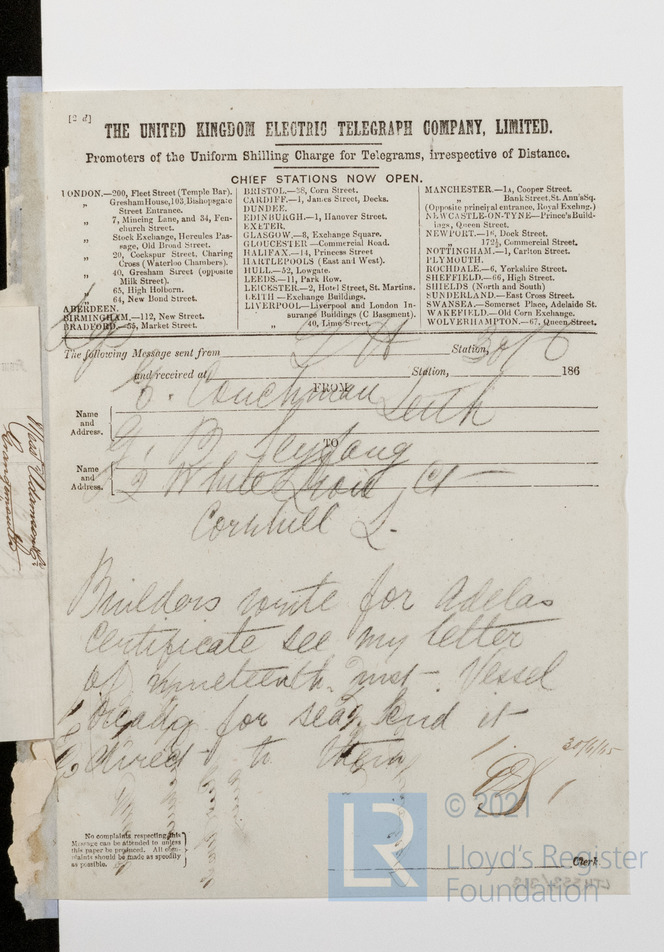 [2 d]
THE UNITED KINGDOM ELECTRIC TELEGRAPH COMPANY, LIMITED.
Promoters of the Uniform Shilling Charge for Telegrams, irrespective of Distance.
CHIEF STATIONS NOW OPEN.
LONDON.—200, Fleet Street (Temple Bar).
„ Gresham House, 103, Bishopsgate
Street Entrance.
„ 7, Mincing Lane, and 34, Fen-
church Street.
„ Stock Exchange, Hercules Pas-
sage, Old Broad Street.
„ 20, Cockspur Street, Charing
Cross (Waterloo Chambers).
„ 40, Gresham Street (opposite
Milk Street).
„ 65, High Holborn.
„ 64, New Bond Street.
ABERDEEN.
BIRMINGHAM.—112, New Street.
BRADFORD.—55, Market Street.
BRISTOL.—38, Corn Street.
CARDIFF.—1, James Street, Docks.
DUNDEE.
EDINBURGH.—1, Hanover Street.
EXETER.
GLASGOW.—8, Exchange Square.
GLOUCESTER—Commercial Road.
HALIFAX.—14, Princess Street
HARTLEPOOLS (East and West).
HULL.—52, Lowgate.
LEEDS.—11, Park Row.
LEICESTER.—2, Hotel Street, St. Martins.
LEITH—Exchange Buildings.
LIVERPOOL—Liverpool and London In-
surance Buildings (C Basement).
„ 40, Lime Street.
MANCHESTER.—1A, Cooper Street.
„ Bank Street, St. Ann's Sq.
(Opposite principal entrance, Royal Exchng.)
NEWCASTLE-ON-TYNE—Prince's Build-
ings, Queen Street.
NEWPORT.—16, Dock Street.
„ 172½, Commercial Street.
NOTTINGHAM.—1, Carlton Street.
PLYMOUTH.
ROCHDALE.—6, Yorkshire Street.
SHEFFIELD.—66, High Street.
SHIELDS (North and South)
SUNDERLAND.—East Cross Street.
SWANSEA.—Somerset Place, Adelaide St.
WAKEFIELD.—Old Corn Exchange.
WOLVERHAMPTON.—67, Queen Street.
The following Message sent from L H Station, 30/6
and received at Station, 186
FROM
Name and Address. Couchman Leith
TO
Name and Address. G. B. Seyfang
2 White Lion Ct
Cornhill L.
Builders write for Adelas
Certificate see my letter
of nineteenth inst. Vessel
ready for sea, send it
direct to them
30/6/65
No complaints respecting this
Message can be attended to unless
this paper be produced. All com-
plaints should be made as speedily
as possible.
Clerk
LR
© 2021
Lloyd's Register
Foundation